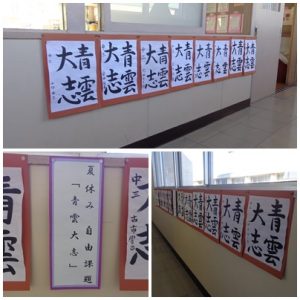 青雲
大志
青雲
大志
青雲
大志
青雲
大志
青雲
大志
青雲
大志
青雲
大志
青雲
大志
青雲
夏休み 自由課題
「青雲大志」
大志
中三 古市
青雲
大志
青雲
大志
青雲
大志
青雲
大志